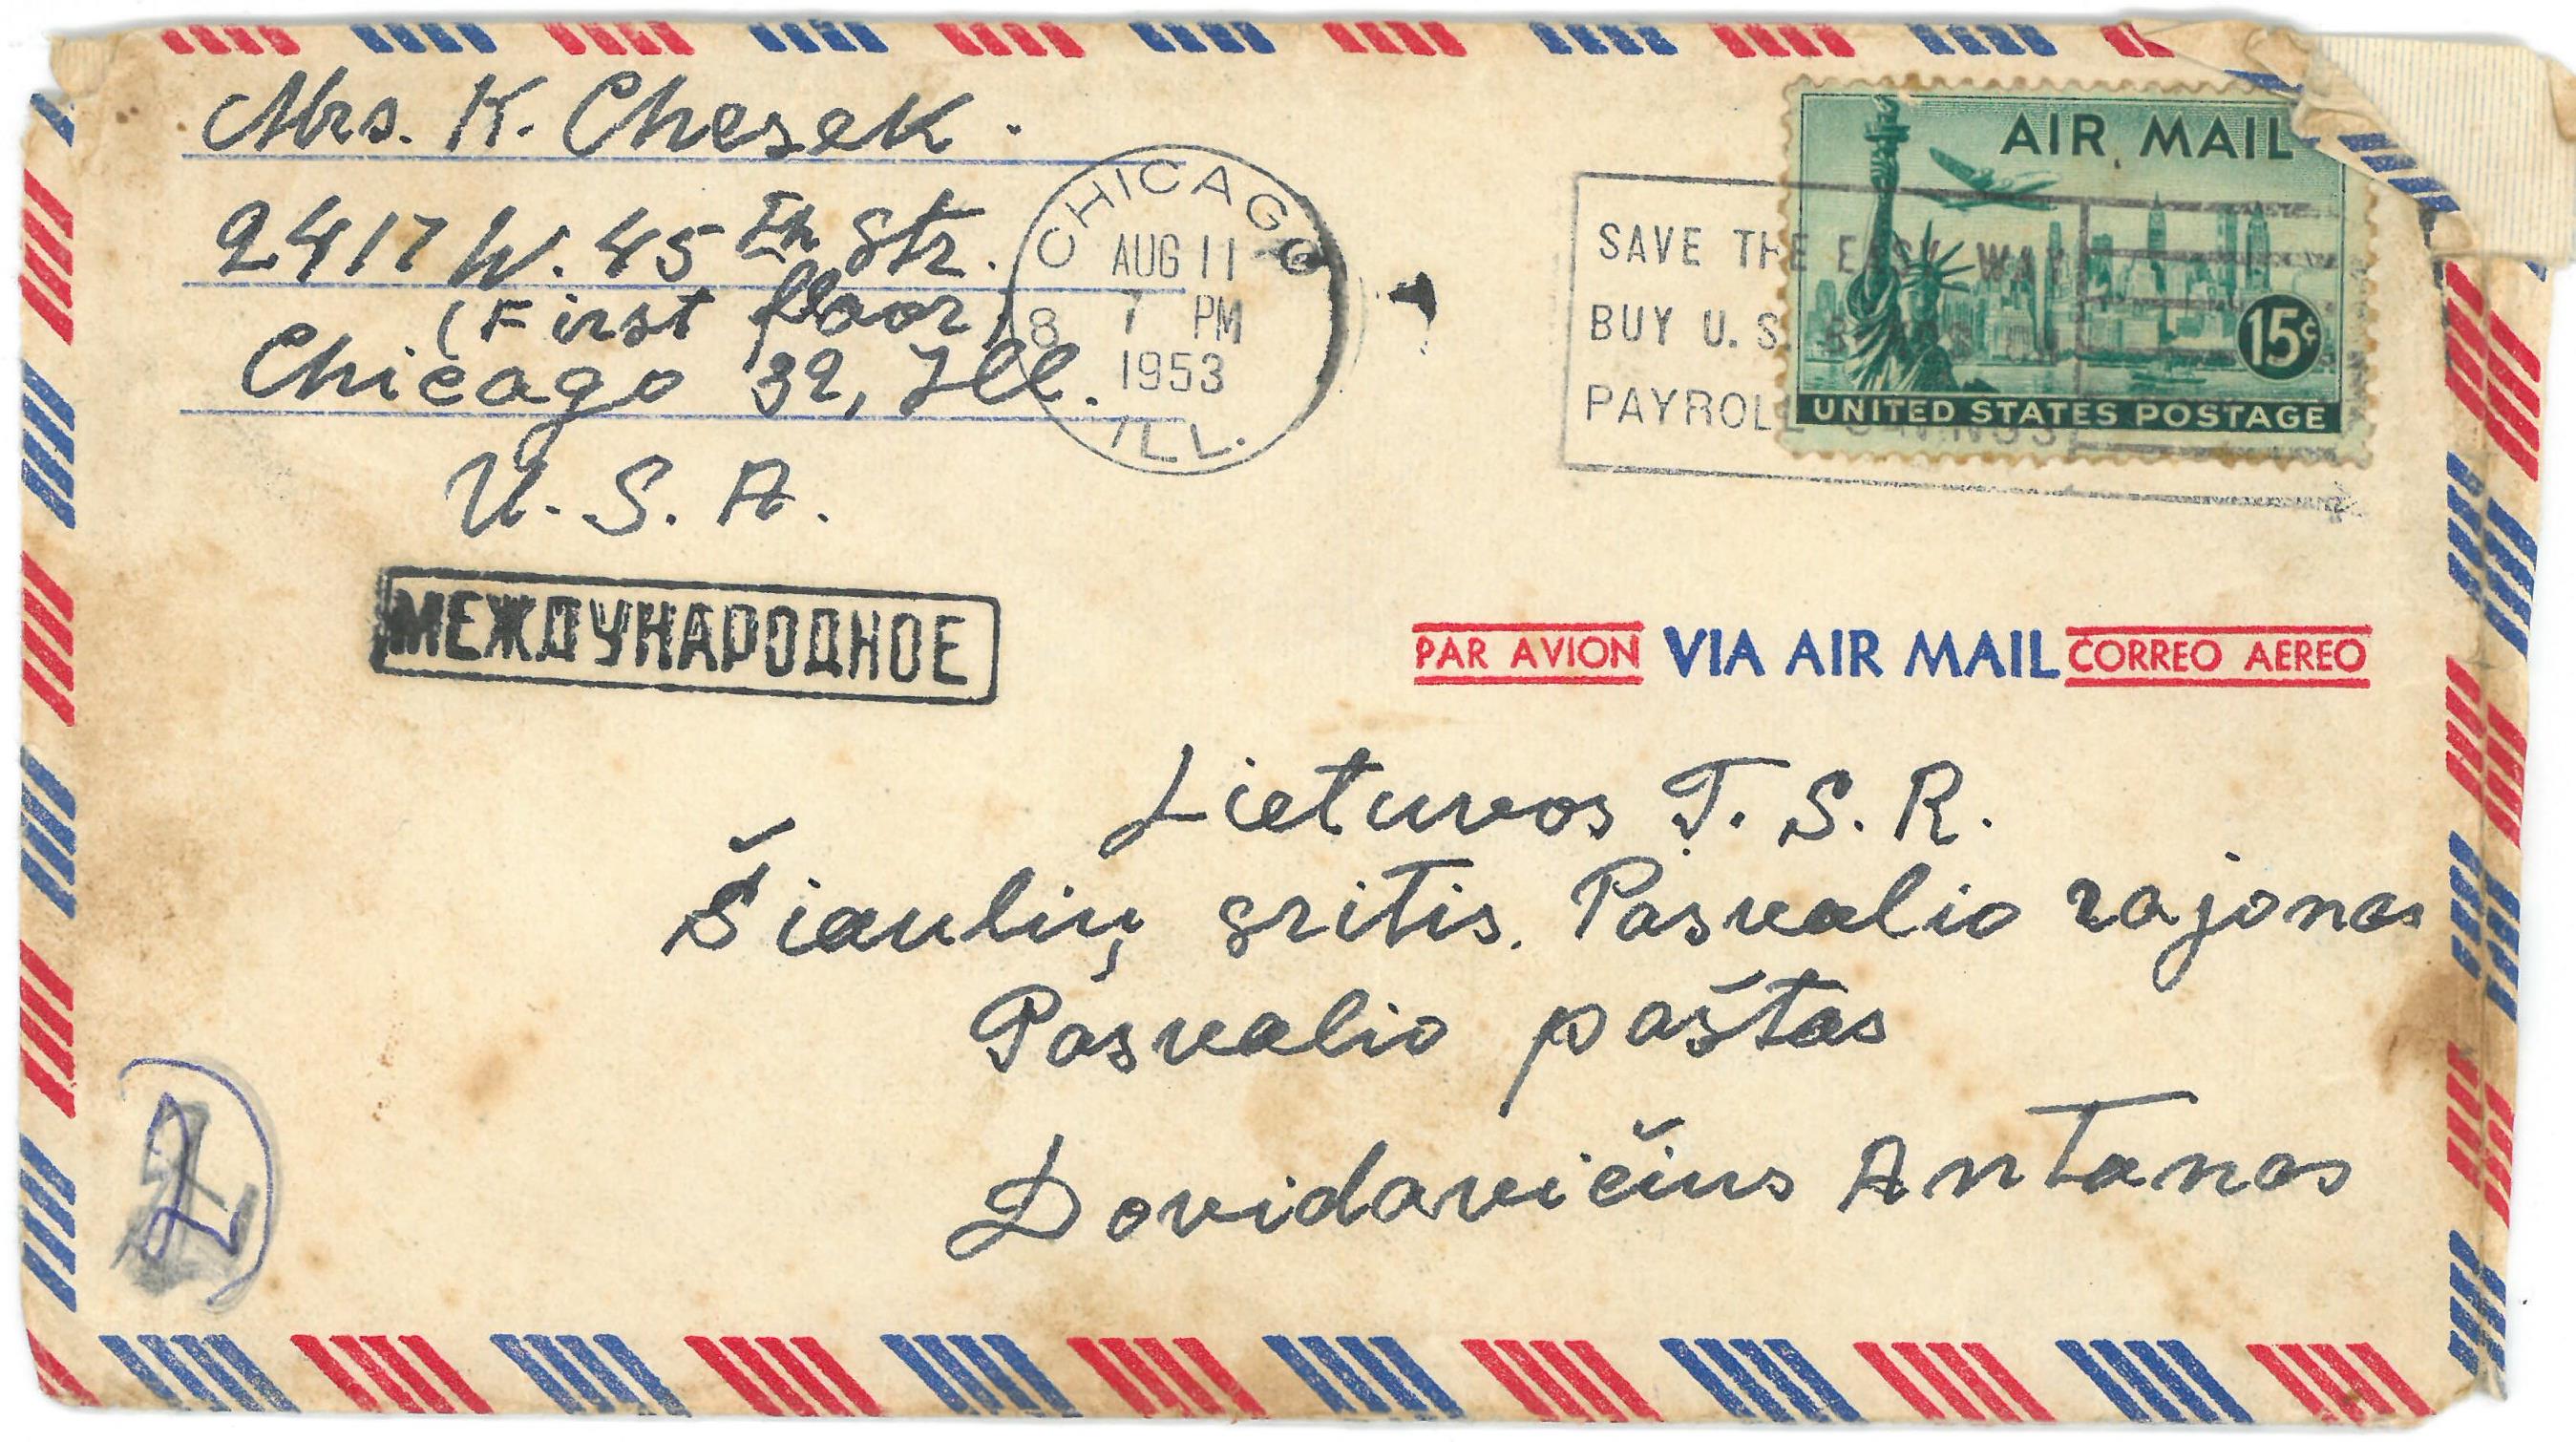 Mrs. K. Chesek.
2417 W. 45th Str.
(First floor)
Chicago 32, Ill.
U.S.A.
CHICAGO
AUG 11
8 7 PM
1953
ILL.
SAVE THE EASY WAY
BUY U.S. BONDS ON
PAYROLL SAVINGS
AIR MAIL
15¢
UNITED STATES POSTAGE
МЕЖДУНАРОДНОЕ
PAR AVION VIA AIR MAIL CORREO AEREO
Lietuvos T.S.R.
Šiaulių sritis. Pasvalio rajonas
Pasvalio paštas
Dovidavičius Antanas